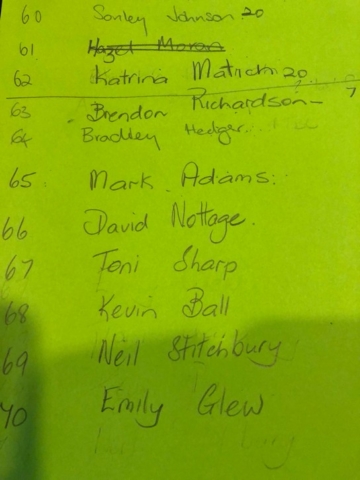 60 Sonley Johnson 20
61 Hazel Moran
62 Katrina 20
63 Brendon Richardson-
64 Bradley Hedger
65 Mark Adams
66 David Nottage
67 Toni Sharp
68 Kevin Ball
69 Neil Stitchbury
70 Emily Glew